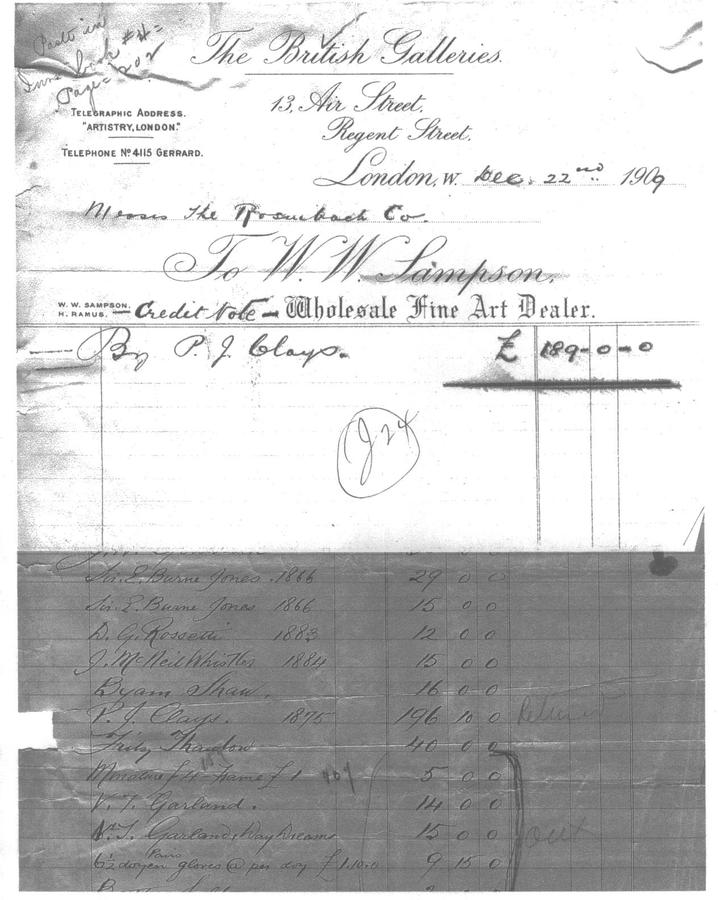 Paste in
Inv. book #4=
Page = 202
The British Galleries.
TELEGRAPHIC ADDRESS.
"ARTISTRY, LONDON."
TELEPHONE Nº 4115 GERRARD.
13, Air Street,
Regent Street,
London, W. Dec. 22nd 1909
Messrs The Rosenbach Co.
To W. W. Sampson,
W. W. SAMPSON.
H. RAMUS.
— Credit Note — Wholesale Fine Art Dealer.
By P. J. Clays. £ 189-0-0
J24
Sir. E. Burne Jones. 1866 29 0 0
Sir. E. Burne Jones 1866 15 0 0
D. G. Rossetti 1883 12 0 0
J. McNeil Whistler 1884 15 0 0
Byam Shaw. 16 0 0
P. J. Clays. 1875 196 10 0 Returned
Fritz Thaulow 40 0 0
Miniature £4 Frame £1 5 0 0
V. T. Garland. 14 0 0
V. T. Garland, Day Dreams 15 0 0 out
6½ dozen Pairs gloves @ per doz £1.10.0 9 15 0